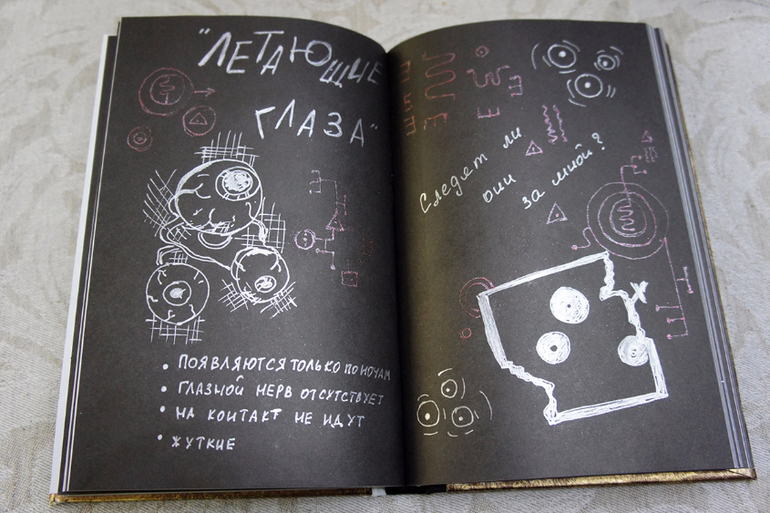 "ЛЕТАЮЩИЕ
ГЛАЗА"
• ПОЯВЛЯЮТСЯ ТОЛЬКО ПО НОЧАМ
• ГЛАЗНОЙ НЕРВ ОТСУТСТВУЕТ
• НА КОНТАКТ НЕ ИДУТ
• ЖУТКИЕ
Следят ли
они
за мной?